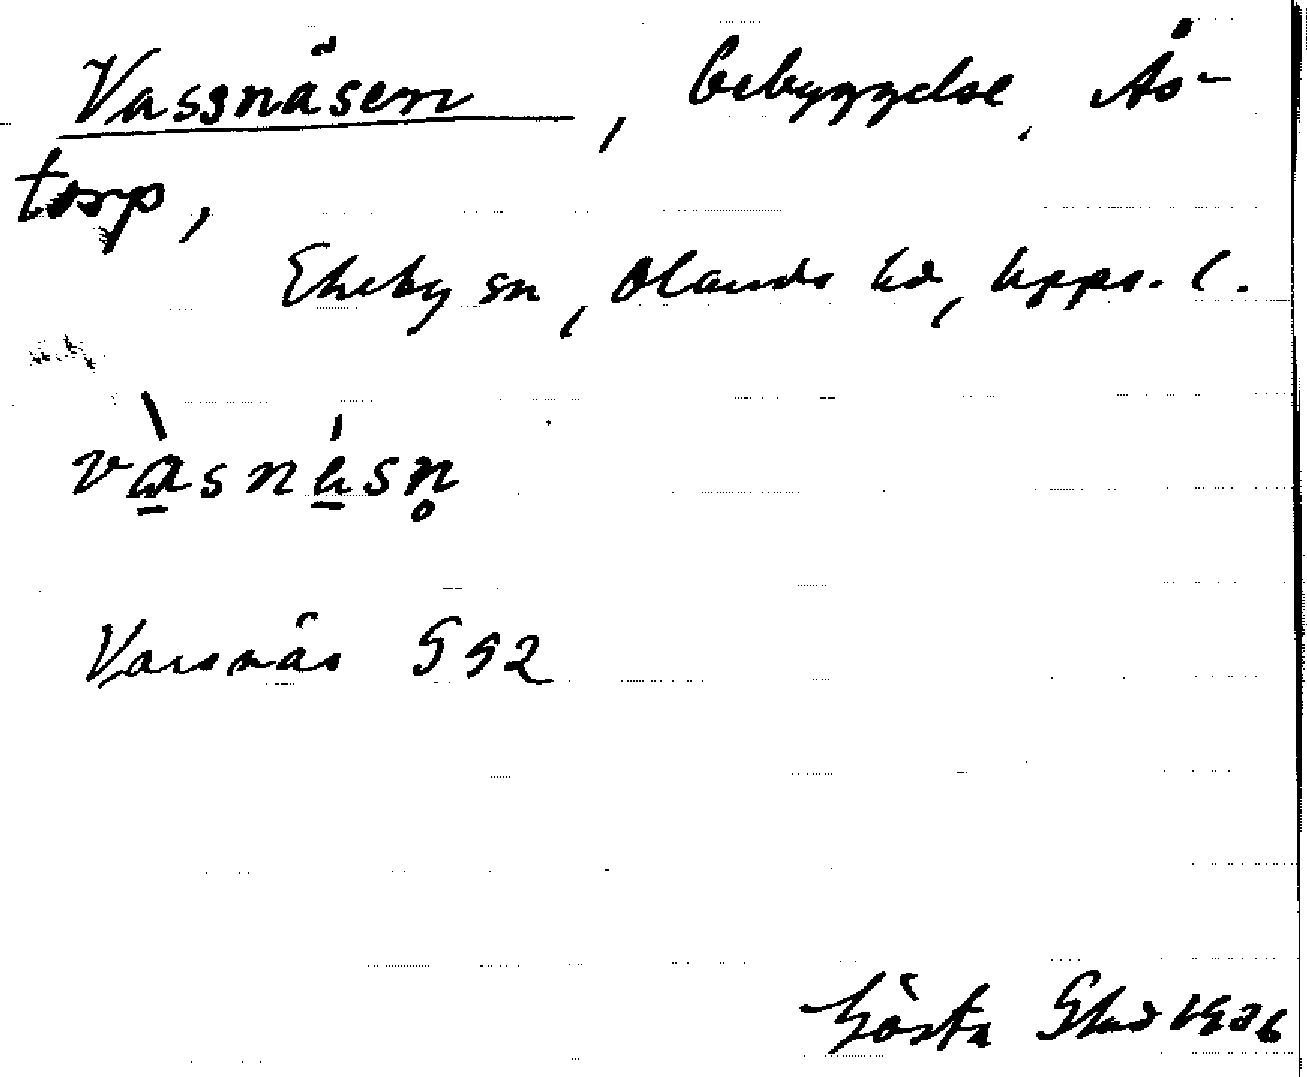 Vassnäsen, bebyggelse, Ås-
torp,
Ekeby sn, Olands hd, Upps. l.
vàsnásn̥
Vassnäs G 92
Gösta